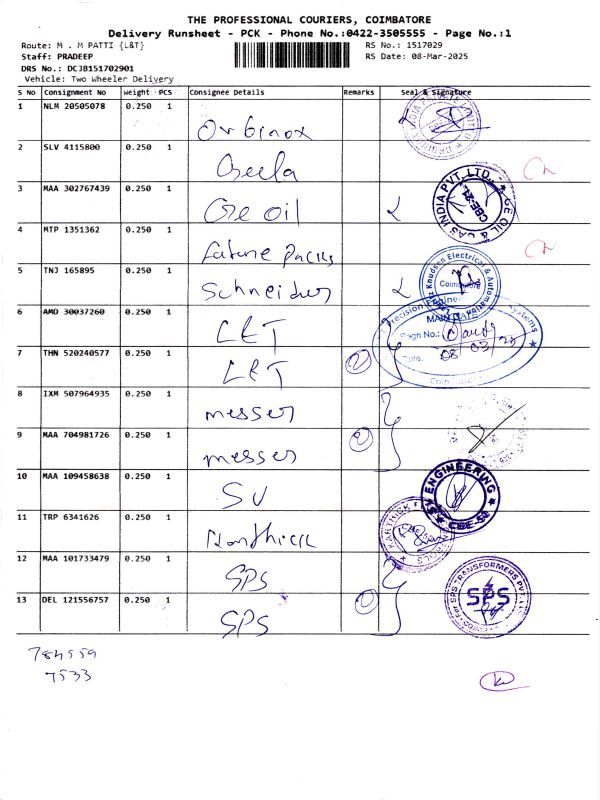 THE PROFESSIONAL COURIERS, COIMBATORE
Delivery Runsheet - PCK - Phone No.:0422-3505555 - Page No.:1
Route: M . M PATTI {L&T} RS No.: 1517029
Staff: PRADEEP RS Date: 08-Mar-2025
DRS No.: DCJB151702901
Vehicle: Two Wheeler Delivery
S No Consignment No Weight PCS Consignee Details Remarks Seal & Signature
1 NLM 20505078 0.250 1 Orbinox
2 SLV 4115800 0.250 1
3 MAA 302767439 0.250 1 Ge oil
GE OIL & GAS INDIA PVT. LTD. CBE-21
4 MTP 1351362 0.250 1 Future Packs
5 TNJ 165895 0.250 1 Schneider
Knudsen Electrical & Automation
Coimbatore
6 AMD 30037260 0.250 1 L&T
MAIN GATE
Pagn No.:
Date. 08/03/25
7 THN 520240577 0.250 1 L&T 2
8 IXM 507964935 0.250 1 messer
9 MAA 704981726 0.250 1 messer 2
10 MAA 109458638 0.250 1 SV
SV ENGINEERING CBE-
11 TRP 6341626 0.250 1
12 MAA 101733479 0.250 1 SPS
13 DEL 121556757 0.250 1 SPS 2
For SPS TRANSFORMERS PVT. LTD.
SPS
784559
7533